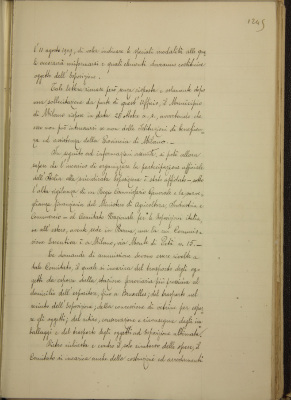 1245
l' 11 agosto 1909, di voler indicare le speciali modalità alle quali
le necessità uniformarsi e quali elementi dovranno costituire
oggetto dell'Esposizione.
Tale lettera rimase però senza risposta, solamente dopo
una sollecitazione da parte di quest'Ufficio, il Municipio
di Milano rispose in data 28 Ottobre s. a. avvertendo che
esso non può interessarsi se non delle Istituzioni di beneficen
za ed assistenza della Provincia di Milano. —
Che seguito ad informazioni assunte, si poté allora
sapere che l'incarico di organizzare la partecipazione ufficiale
dell'Italia alla suindicata Esposizione è stato affidato — sotto
l'alta vigilanza di un Regio Commissario Generale e la sorve
glianza finanziaria del Ministero di Agricoltura, Industria e
Commercio — al Comitato Nazionale per le Esposizioni italia
ne all'estero, avente sede in Roma, ma la cui Commis
sione Esecutiva è a Milano, via Monte di Pietà n. 15. —
Le domande di ammissione devono essere rivolte a
tale Comitato, il quale si incarica del trasporto degli og
getti da esporsi dalla stazione ferroviaria più vicina al
domicilio dell'espositore, fino a Bruxelles; del trasporto nel
recinto dell'Esposizione; della concessione di
gli oggetti; del ritiro, conservazione e riconsegna degli im
ballaggi e del trasporto degli oggetti ad Esposizione ultimata.
Dietro richiesta e contro il solo rimborso delle spese, il
Comitato si incarica anche della costruzione ed arredamenti